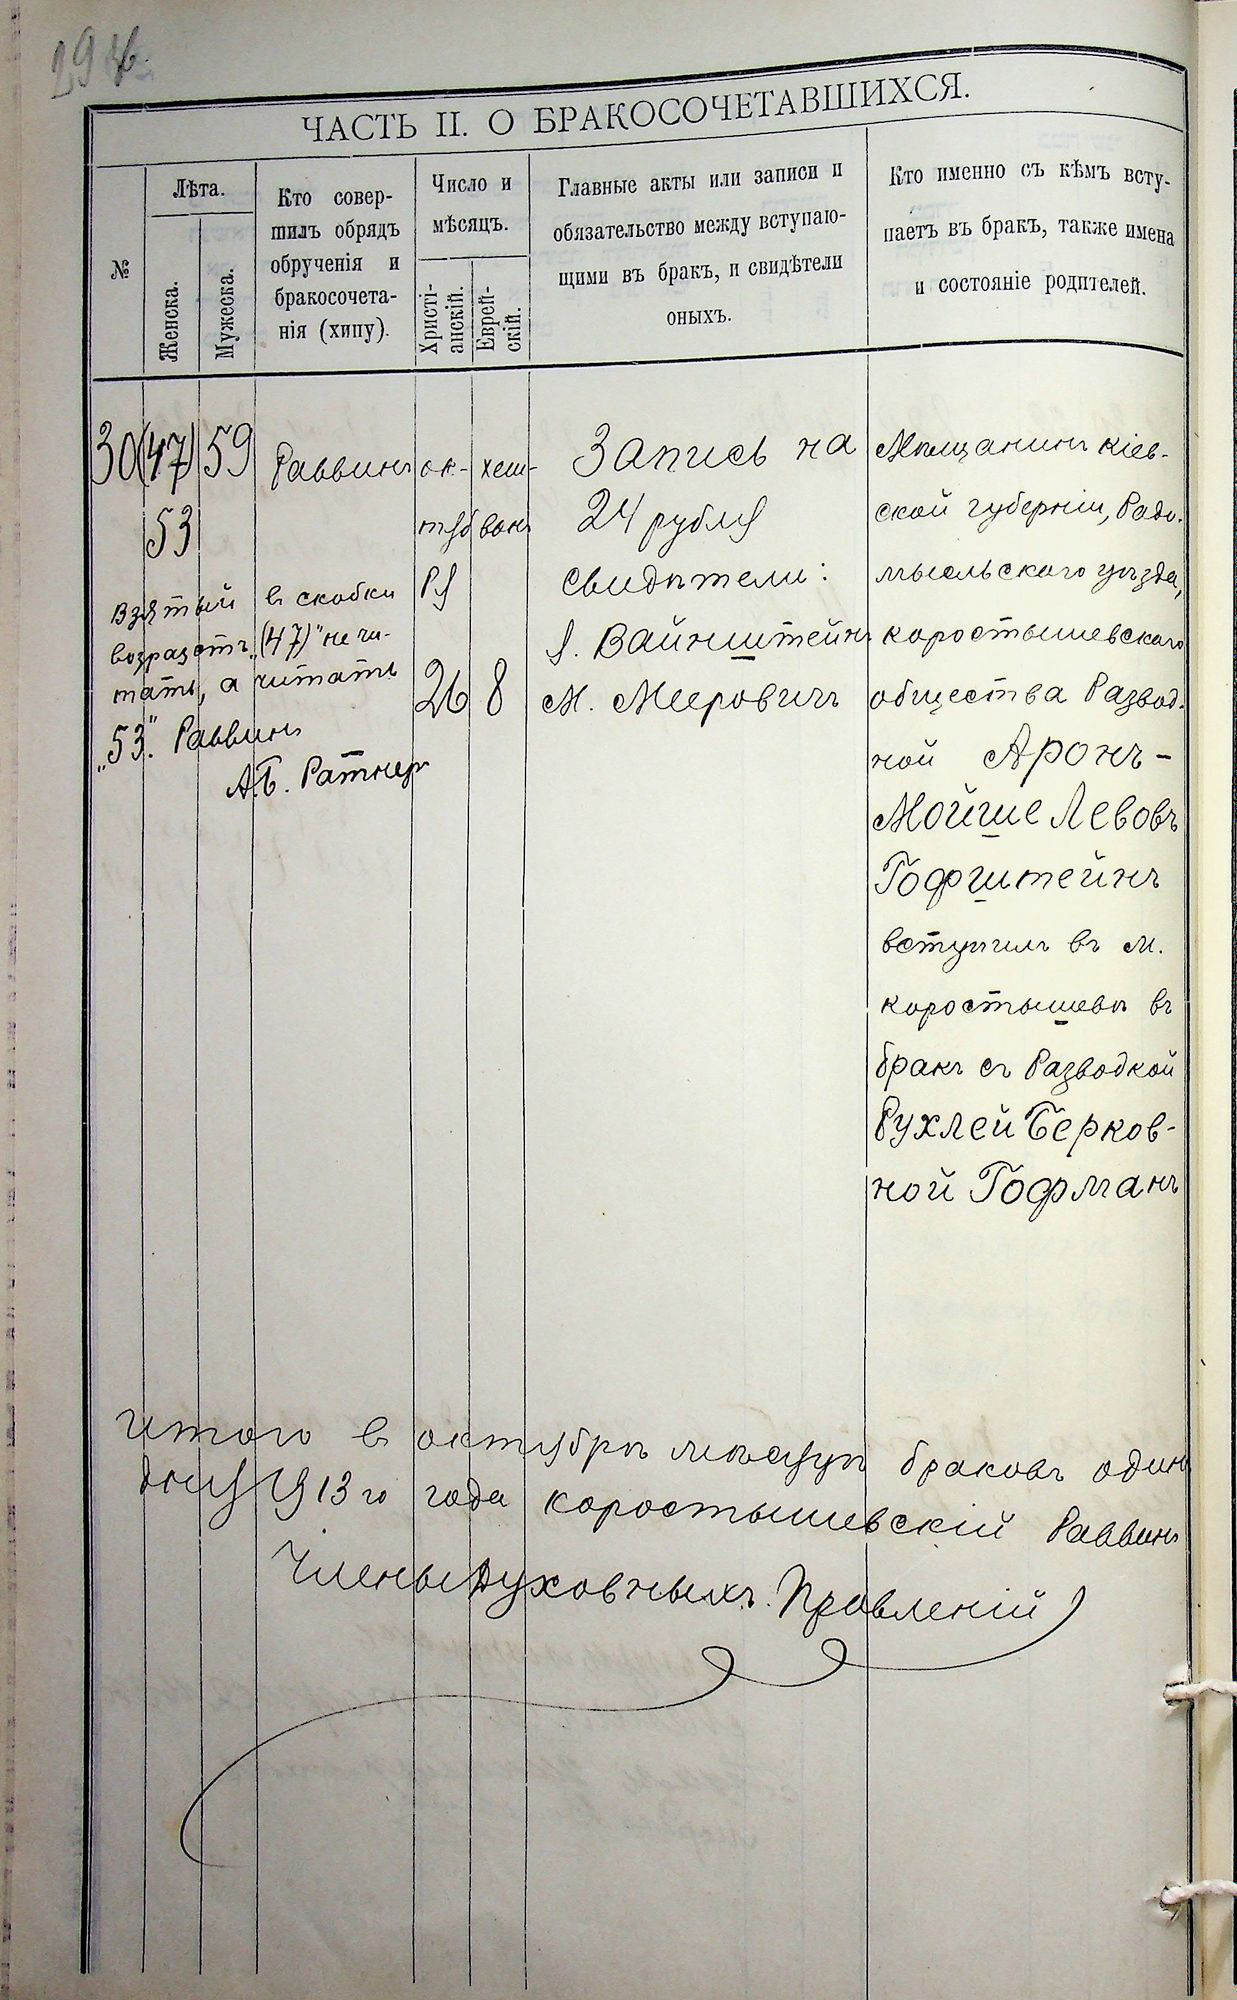 ЧАСТЬ II. О БРАКОСОЧЕТАВШИХСЯ.
№
Лѣта.
Женска.
Мужеска.
Кто совер-
шилъ обрядъ
обрученія и
бракосочета-
нія (хипу).
Число и
мѣсяцъ.
Христі-
анскій.
Еврей-
скій.
Главные акты или записи и
обязательство между вступаю-
щими въ бракъ, и свидѣтели
оныхъ.
Кто именно съ кѣмъ всту-
паетъ въ бракъ, также имена
и состояніе родителей.
30
(47)
53
59
Раввинъ
ок-
тяб
ря
26
хеш-
вонъ
8
Запись на
24 рубля
Свидѣтели:
Я. Вайнштейнъ
М. Мееровичъ
Мѣщанинъ Кіев-
ской губерніи, Радо-
мысльскаго уѣзда,
Коростышевскаго
общества Развод-
ной Аронъ-
Мойше Левовъ
Гофштейнъ
вступилъ въ м.
Коростышевѣ въ
бракъ съ Разводкой
Рухлей Берков-
ной Гофманъ
Взятый в скобки
возрастъ „(47)" не чи-
тать, а читать
„53". Раввинъ
А.Б. Ратнеръ
Итого въ октябрѣ мѣсяцѣ браковъ одинъ
дня 1913го года Коростышевскій Раввинъ
Члены Духовныхъ Правленій